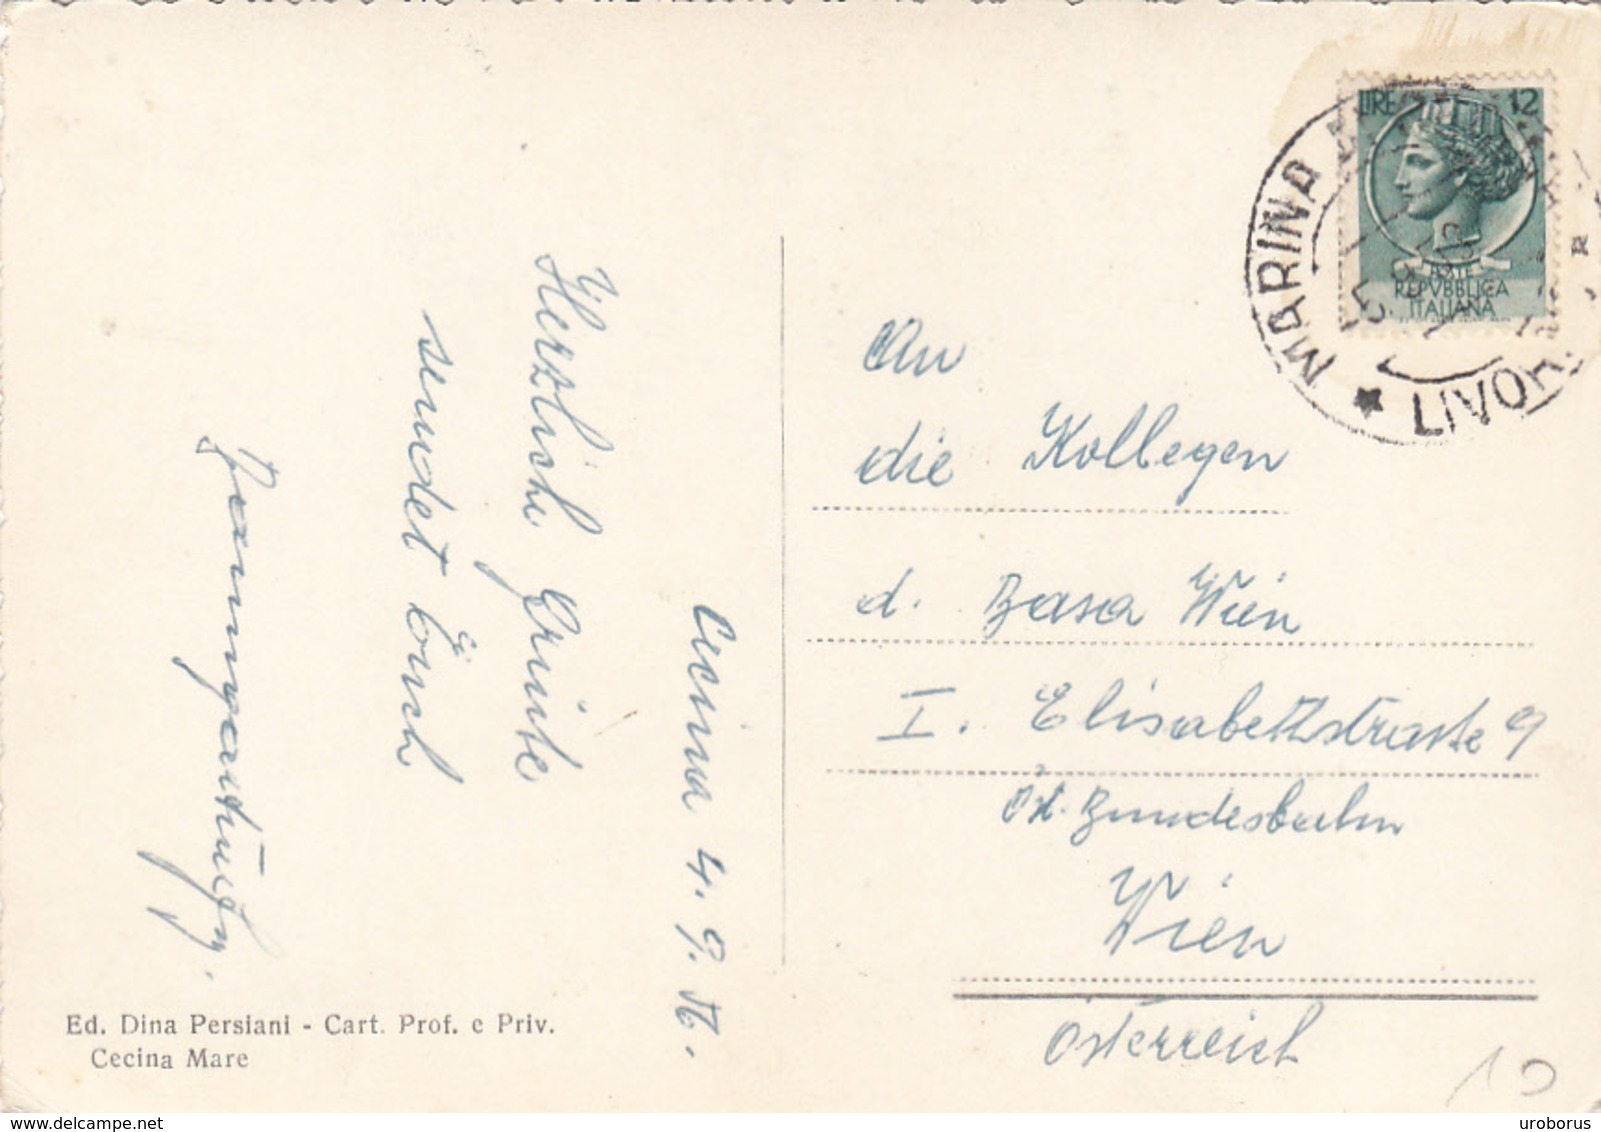 Cecina 4. 9. 56.
Herzlich Grüße
sendet Euch
Ed. Dina Persiani - Cart. Prof. e Priv.
Cecina Mare
LIRE 12
POSTE
REPVBBLICA
ITALIANA
MARINA
LIVOR
An
die Kollegen
d. Basa Wien
I. Elisabethstraße 9
Öst. Bundesbahn
Wien
Österreich
10
delcampe.net
uroborus